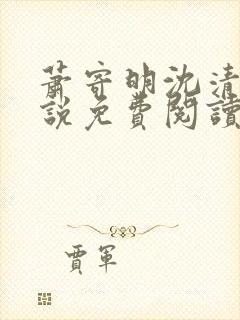 蕭寄明沈清
說免費閱讀
賈軍